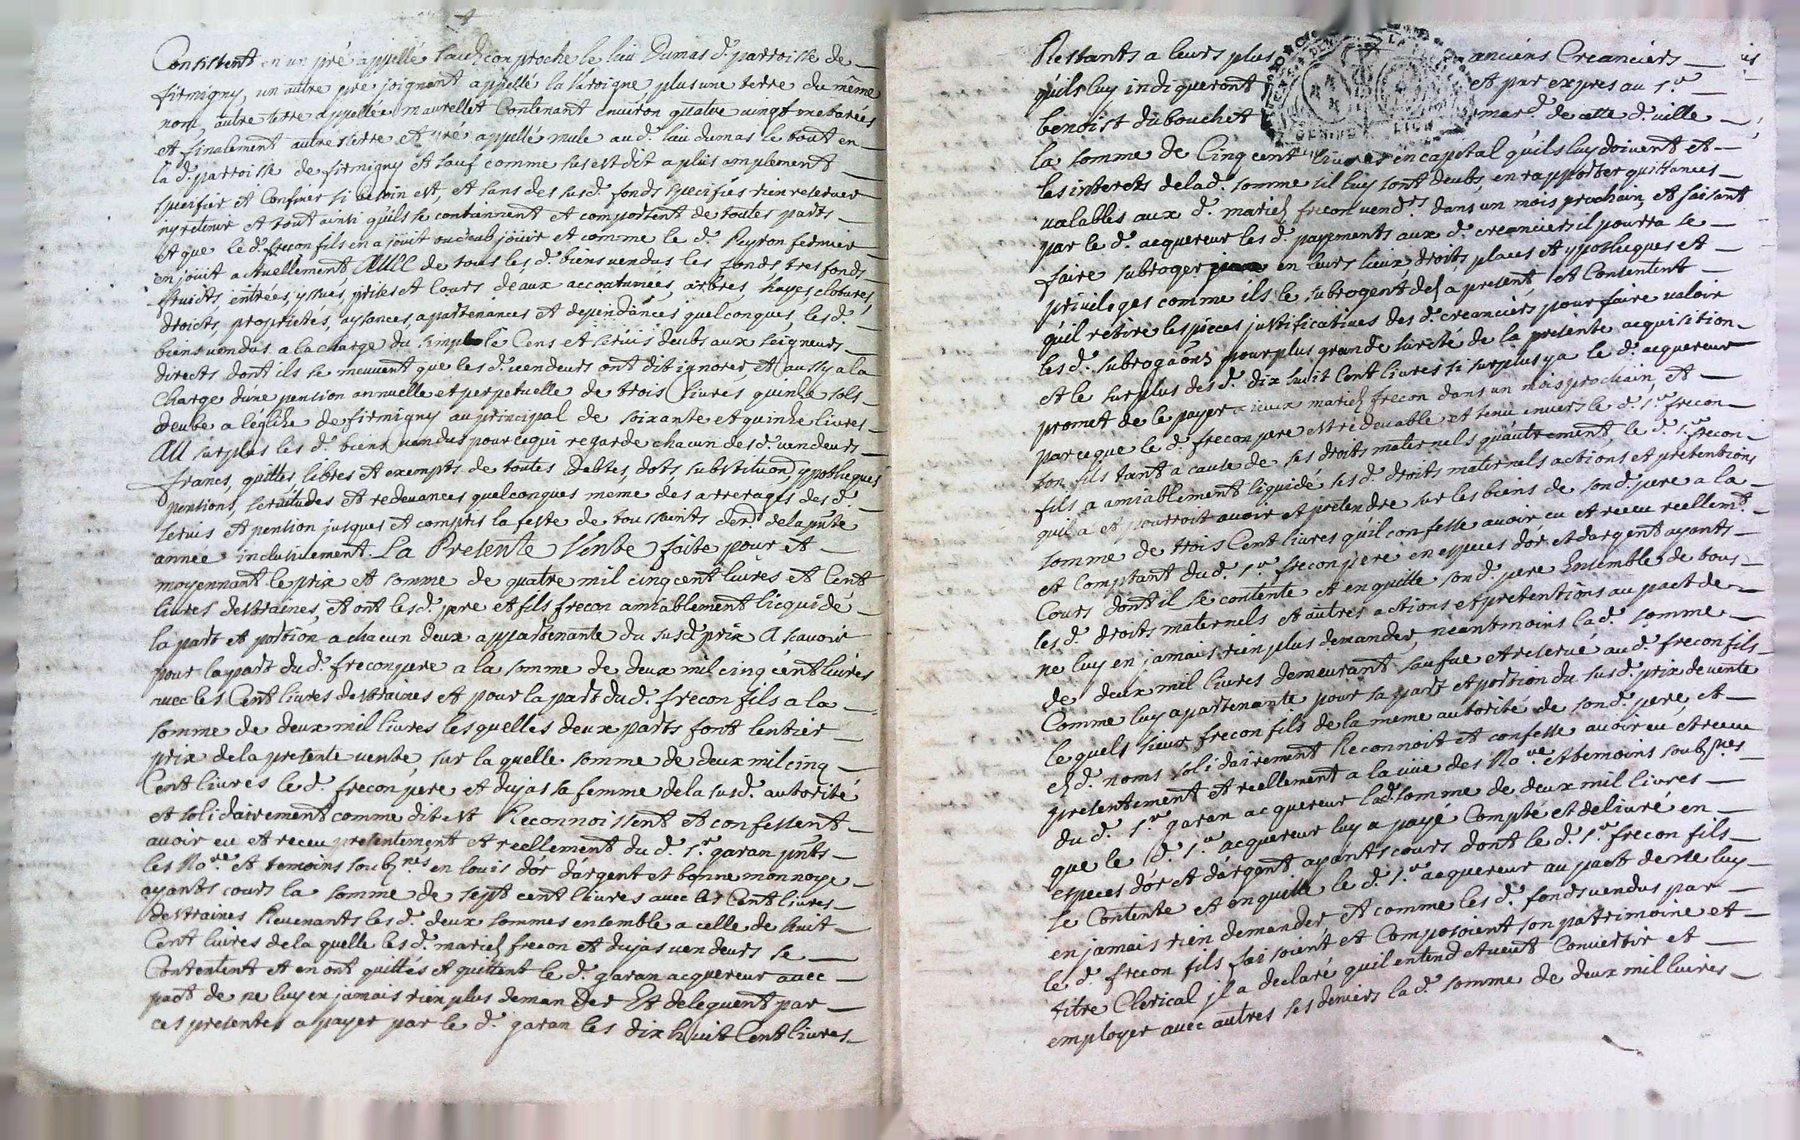 Consistent en un pré appellé proche le lieu Dumas d. parroisse de
firmigny, un autre pre joignant appellé la plus une terre du même
nom, autre terre appellée maurellet Contenant environ quatre vingt meterées
et finalement autre terre et pré appellé mule aud. lieu dumas le tout en
la d. parroisse de firmigny et sauf comme sus est dit a plus amplement
specifier et Confiner si besoin est, et sans des susd. fonds specifiés rien reserver
ny retenir et tout ainsi quils se contiennent et comportent de toutes parts
et que le d. frecon fils en a jouit ou deub jouir et comme le d. Peyron fermier
en jouit actuellement Avec de tous les d. biens vendus les fonds tres fonds
fruicts, entrées, yssues, prises et Cours deaux accoutumées, arbres, hayes, clotures,
droicts, proprietés, aysances, apartenances et dependances quelconques, les d.
biens vendus a la charge du simple Cens et servis deubs aux seigneurs
directs dont ils se meuvent que les d. vendeurs ont dit ignorer et aussy a la
charge dune pention annuelle et perpetuelle de trois livres quinze sols
deube a léglise de firmigny au principal de soixante et quinze livres
Au surplus les d. biens vendus pour ce qui regarde chacun des d. vendeurs
francs, quittes, libres et exempts de toutes debtes, dots, substitution, ypotheques
pentions, servitudes et redevances quelconques meme des arrerages des d.
servis et pention jusques et compris la feste de toussaints der. de la pnte
année inclusivement. La Presente Vente faite pour et
moyennant le prix et somme de quatre mil cinq cent livres et Cent
livres destraines, et ont les d. pere et fils frecon amiablement licquidé
la part et portion a chacun deux appartenante du susd. prix A scavoir
pour la part du d. frecon pere a la somme de deux mil cinq cent livres
avec les Cent livres destraines et pour la part du d. frecon fils a la
somme de deux mil livres lesquelles deux parts font lentier
prix de la presente vente, sur la quelle somme de deux mil cinq
Cent livres le d. frecon pere et dujas sa femme de la susd. autorité
et solidairement comme dit est Reconnoissent et confessent
avoir eu et receu presentement et reellement du d. Sr. garan pnts
les No.re et temoins soub.nes en louis dor dargent et bonne monnoye
ayants cours la somme de sept cent livres avec les Cent livres
destraines Revenants les d. deux sommes ensemble a celle de huit
Cent livres de la quelle les d. mariés frecon et dujas vendeurs se
Contentent et en ont quittés et quittent le d. garan acquereur avec
pact de ne luy en jamais rien plus demander Et deleguent par
ces presentes a payer par le d. garan les dix huit Cent livres
Restants a leurs plus anciens Creanciers
quils luy indiqueront et par expres au Sr.
benoist dubouchet mar.d de cette d. ville
la somme de Cinq cent livres en capital quils luy doivent et
les interets de la d. somme sil luy sont deubs, en rapporter quittances
valables aux d. mariés frecon vend.rs dans un mois prochain, et faisant
par le d. acquereur les d. payements aux d. creanciers il pourra se
faire subroger en leurs lieux droits places et ypotheques et
privileges comme ils le subrogent des a present et Consentent
quil retire les pieces justificatives des d. creanciers pour faire valoir
les d. subrogaôns pour plus grande sureté de la presente acquisition
et le surplus des d. dix huit Cent livres si surplus y a le d. acquereur
promet de le payer a iceux mariés frecon dans un mois prochain, et
parceque le d. frecon pere est redevable et tenu envers le d. Sr. frecon
son fils tant a cause de ses droits maternels quautrement, le d. Sr. frecon
fils a amiablement liquidé ses d. droits maternels actions et pretentions
quil a et pourroit avoir et pretendre sur les biens de son d. pere a la
somme de trois Cent livres quil confesse avoir eu et receu reellem.t
et Comptant du d. Sr. frecon pere en especes dor et dargent ayants
Cours dont il se contente et en quitte son d. pere Ensemble de tous
les d. droits maternels et autres actions et pretentions au pact de
ne luy en jamais rien plus demander, neantmoins la d. somme
de deux mil livres demeurant sauve et reservé au d. frecon fils
Comme luy apartenante pour sa part et portion du susd. prix de vente
lequels sieur frecon fils de la meme autorité de son d. pere, et
es d. noms solidairement Reconnoit et confesse avoir eu et receu
presentement et reellement a la vüe des No.re et temoins soub.nes
du d. Sr. garan acquereur la d. somme de deux mil livres
que le d. Sr. acquereur luy a payé Compté et delivré en
especes dor et dargent ayants cours dont le d. Sr. frecon fils
se Contente et en quitte le d. Sr. acquereur au pact de ne luy
en jamais rien demander, et comme les d. fonds vendus par
le d. frecon fils faisoient et Composoient son patrimoine et
titre Clerical il a declaré quil entend et veut Convertir et
employer avec autres ses deniers la d. somme de deux mil livres